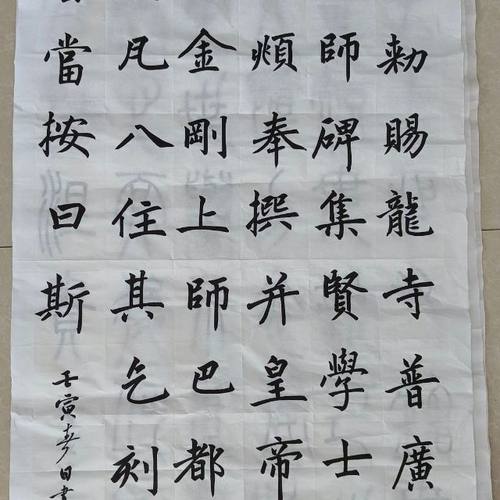 勅賜龍寺普廣
師碑集賢學士
頫奉撰并皇帝
金剛上師巴都
凡八住其乞刻
當按曰斯
壬寅春日書